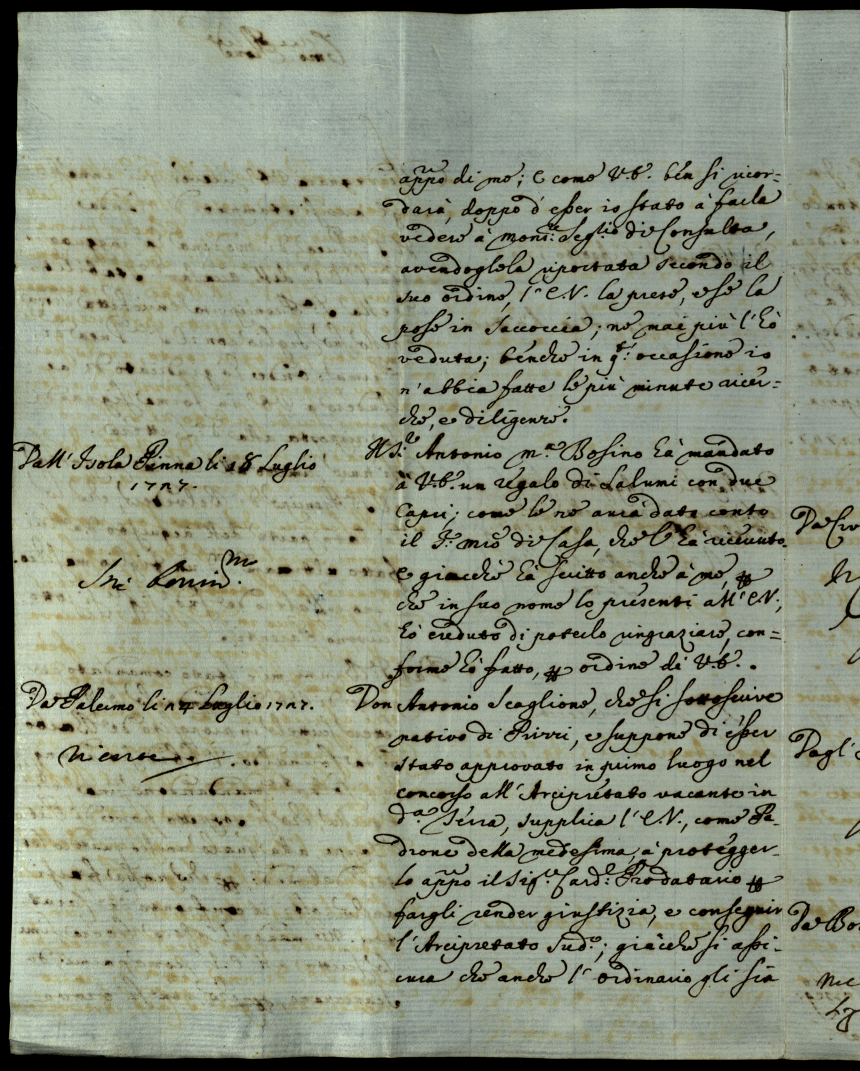 app.o di me; e come V.E. ben si ricor=
darà, doppo d'esser io stato à farla
vedere à mons.r Seg.rio di Consulta,
avendoglela riportata secondo il
suo ordine, l'E.V. la prese, e se la
pose in saccoccia; ne mai più l'hò
veduta; benche in q.ta occasione io
n'abbia fatte le più minute ricer=
che, e diligenze.
Dall'Isola Pinna li 18 Luglio
1727.
Il S.re Antonio M.a Bosino hà mandato
à V.E. un regalo di Salumi con due
Capri; come le ne avrà dato conto
il M.ro di Casa, che l'hà ricevuto
e giacche hà scritto anche à me,
che in suo nome lo presenti all'E.V.,
hò creduto di poterlo ringraziare, con=
forme hò fatto, ordine di V.E..
Da Palermo li 24 Luglio 1727.
niente
Don Antonio Scaglione, che si sottoscrive
nativo di Prizzi, e suppone di esser
stato approvato in primo luogo nel
concorso all'Arcipretato vacante in
d.a Terra, supplica l'E.V., come Pa-
drone della medesima, à protegger-
lo app.o il Sig.r Card.l Prodatario
fargli render giustizia, e conseguir
l'Arcipretato sud.o; giacche si assi-
cura che anche l'ordinario gli sia
Dagl'